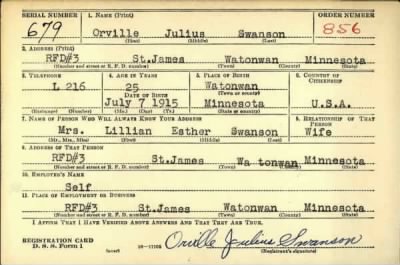 SERIAL NUMBER 1. NAME (Print) ORDER NUMBER
679 Orville Julius Swanson 856
(First) (Middle) (Last)
2. ADDRESS (Print)
RFD#3 St.James Watonwan Minnesota
(Number and street or R. F. D. number) (Town) (County) (State)
3. TELEPHONE 4. AGE IN YEARS 5. PLACE OF BIRTH 6. COUNTRY OF CITIZENSHIP
L 216 25 Watonwan
DATE OF BIRTH (Town or county)
July 7 1915 Minnesota U.S.A.
(Mo.) (Day) (Yr.) (State or country)
7. NAME OF PERSON WHO WILL ALWAYS KNOW YOUR ADDRESS 8. RELATIONSHIP OF THAT PERSON
Mrs. Lillian Esther Swanson Wife
(Mr., Mrs., Miss) (First) (Middle) (Last)
9. ADDRESS OF THAT PERSON
RFD#3 St.James Wa tonwan Minnesota
(Number and street or R. F. D. number) (Town) (County) (State)
10. EMPLOYER'S NAME
Self
11. PLACE OF EMPLOYMENT OR BUSINESS
RFD#3 St.James Watonwan Minnesota
(Number and street or R. F. D. number) (Town) (County) (State)
I AFFIRM THAT I HAVE VERIFIED ABOVE ANSWERS AND THAT THEY ARE TRUE.
REGISTRATION CARD
D. S. S. FORM 1 (over) Orville Julius Swanson
(Registrant's signature)